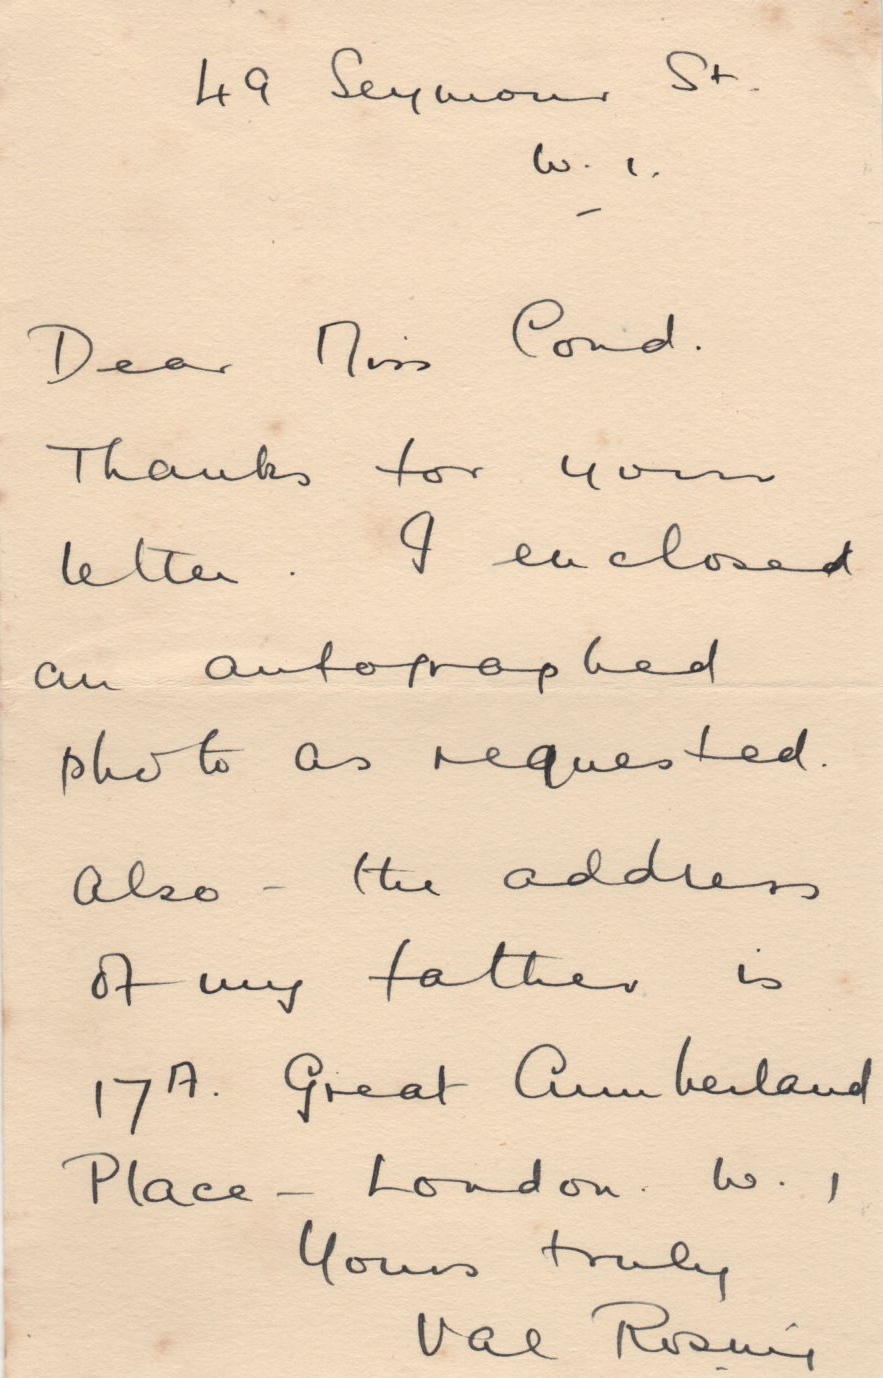 49 Seymour St.
W. 1.
Dear Miss Cond.
Thanks for your
letter. I enclosed
an autographed
photo as requested.
Also - the address
of my father is
17A. Great Cumberland
Place - London. W. 1
Yours truly
Val Rosing